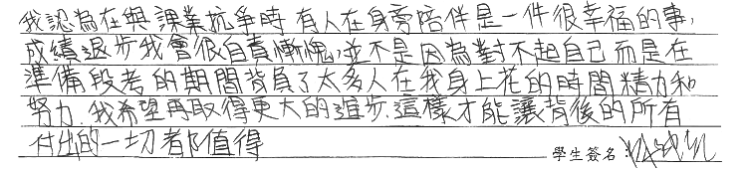 我認為在與課業抗爭時有人在身旁陪伴是一件很幸福的事,
成績退步我會很自責慚愧,並不是因為對不起自己而是在
準備段考的期間背負了太多人在我身上花的時間精力和
努力.我希望再取得更大的進步.這樣才能讓背後的所有
付出的一切都值得
學生簽名: